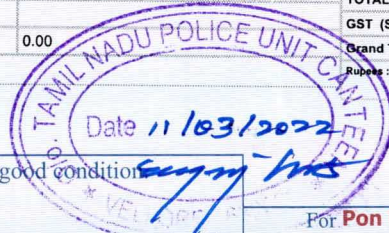 TOTAL
GST (S
0.00
Grand
Rupees :
TAMIL NADU POLICE UNIT CANTEEN
Date 11/03/2022
good condition
For Pon